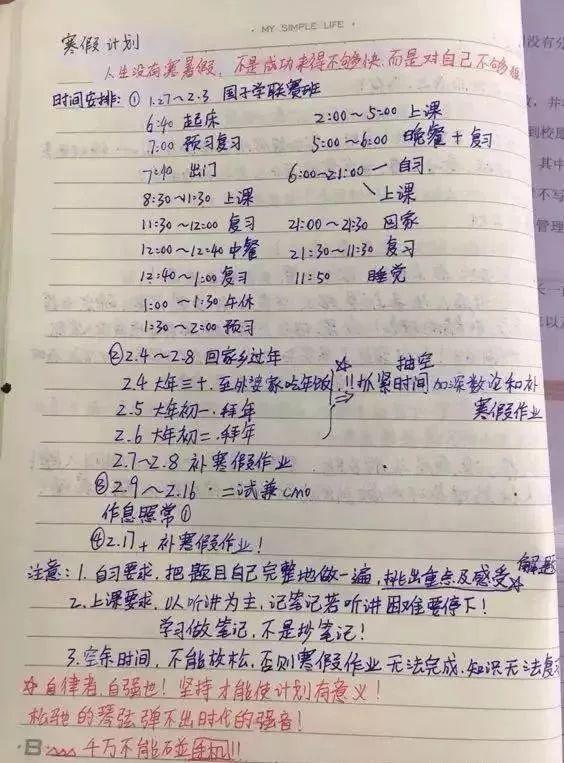 · MY SIMPLE LIFE ·
寒假计划
人生没有寒暑假，不是成功来得不够快，而是对自己不够狠
时间安排：① 1.27～2.3 国子学联赛班
6:40 起床 2:00～5:00 上课
7:00 预习复习 5:00～6:00 晚餐+复习
7:40 出门 6:00～21:00 — 自习
8:30～11:30 上课 上课
11:30～12:00 复习 21:00～21:30 回家
12:00～12:40 中餐 21:30～11:30 复习
12:40～1:00 复习 11:50 睡觉
1:00～1:30 午休
1:30～2:00 预习
②2.4～2.8 回家乡过年
2.4 大年三十．至外婆家吃年饭 !! 抓紧时间抽空加深数论和补
2.5 大年初一．拜年 寒假作业
2.6 大年初二．拜年
2.7～2.8 补寒假作业
③2.9～2.16．二试兼cmo
作息照常①
④2.17+ 补寒假作业！
注意：1. 自习要求，把题目自己完整地做一遍，挑出重点及解题感受
2. 上课要求，以听讲为主，记笔记若听讲困难要停下！
学习做笔记，不是抄笔记！
3. 空余时间，不能放松，否则寒假作业无法完成，知识无法复
☆自律者，自强也！坚持才能使计划有意义！
松驰的琴弦弹不出时代的强音！
千万不能碰手机!!!
没有分
到校
其中
不写
管理